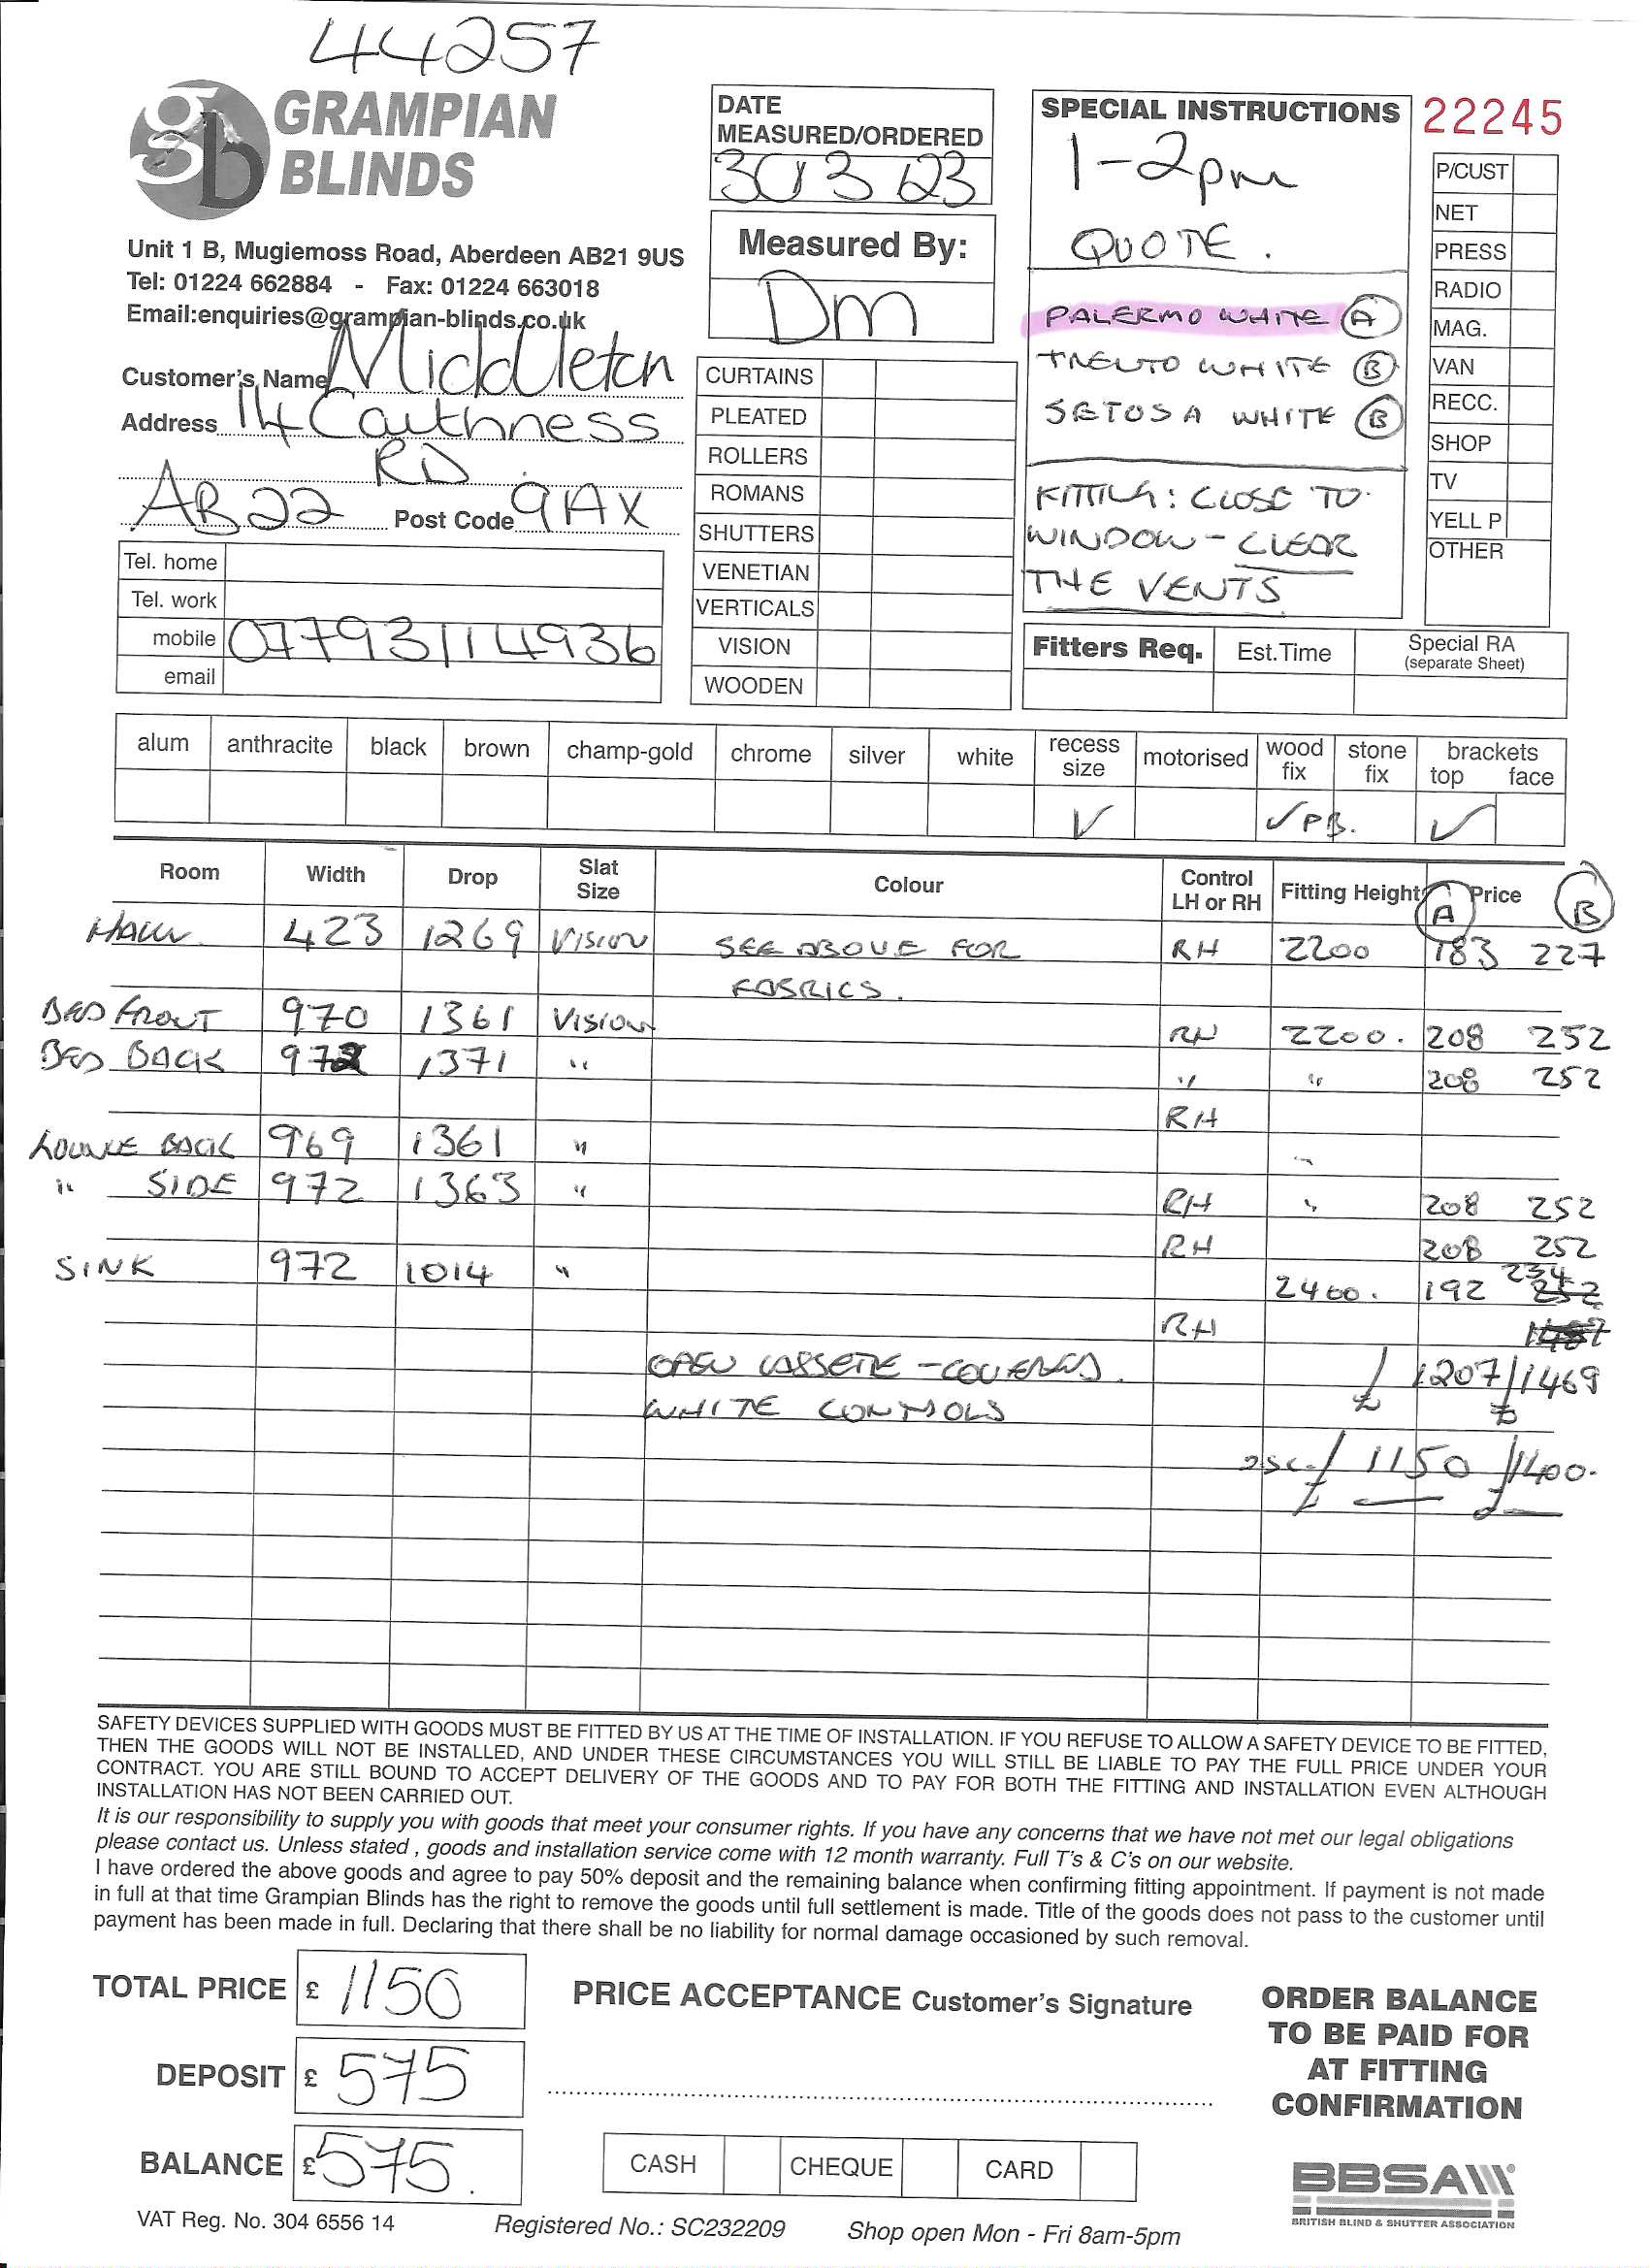 44257
GRAMPIAN
BLINDS
Unit 1 B, Mugiemoss Road, Aberdeen AB21 9US
Tel: 01224 662884 - Fax: 01224 663018
Email:enquiries@grampian-blinds.co.uk
Customer's Name Middleton
Address 14 Caithness
RD
AB22 Post Code 9AX
Tel. home
Tel. work
mobile 07793114936
email
DATE
MEASURED/ORDERED
30 3 23
Measured By:
Dm
CURTAINS
PLEATED
ROLLERS
ROMANS
SHUTTERS
VENETIAN
VERTICALS
VISION
WOODEN
SPECIAL INSTRUCTIONS
1-2pm
QUOTE.
PALERMO WHITE A
TRENTO WHITE B
SETOSA WHITE B
FITTING: CLOSE TO
WINDOW - CLEAR
THE VENTS
22245
P/CUST
NET
PRESS
RADIO
MAG.
VAN
RECC.
SHOP
TV
YELL P
OTHER
Fitters Req. Est.Time Special RA
(separate Sheet)
alum anthracite black brown champ-gold chrome silver white recess size motorised wood fix stone fix brackets top face
✓ ✓ PB. ✓
Room Width Drop Slat Size Colour Control LH or RH Fitting Height A Price B
HALL 423 1269 VISION SEE ABOVE FOR RH 2200 183 227
FABRICS.
BED FRONT 970 1361 VISION RH 2200. 208 252
BED BACK 972 1371 " " " 208 252
RH
LOUNGE BACK 969 1361 " "
" SIDE 972 1363 " RH " 208 252
RH 208 252
SINK 972 1014 " 2400. 192 234 252
RH 1487
OPEN CASSETTE - COVERED. £ 1207/1469
WHITE CONTROLS
£ 1150 £1400.
SAFETY DEVICES SUPPLIED WITH GOODS MUST BE FITTED BY US AT THE TIME OF INSTALLATION. IF YOU REFUSE TO ALLOW A SAFETY DEVICE TO BE FITTED,
THEN THE GOODS WILL NOT BE INSTALLED, AND UNDER THESE CIRCUMSTANCES YOU WILL STILL BE LIABLE TO PAY THE FULL PRICE UNDER YOUR
CONTRACT. YOU ARE STILL BOUND TO ACCEPT DELIVERY OF THE GOODS AND TO PAY FOR BOTH THE FITTING AND INSTALLATION EVEN ALTHOUGH
INSTALLATION HAS NOT BEEN CARRIED OUT.
It is our responsibility to supply you with goods that meet your consumer rights. If you have any concerns that we have not met our legal obligations
please contact us. Unless stated , goods and installation service come with 12 month warranty. Full T's & C's on our website.
I have ordered the above goods and agree to pay 50% deposit and the remaining balance when confirming fitting appointment. If payment is not made
in full at that time Grampian Blinds has the right to remove the goods until full settlement is made. Title of the goods does not pass to the customer until
payment has been made in full. Declaring that there shall be no liability for normal damage occasioned by such removal.
TOTAL PRICE £ 1150
DEPOSIT £ 575
BALANCE £ 575.
PRICE ACCEPTANCE Customer's Signature
CASH CHEQUE CARD
ORDER BALANCE
TO BE PAID FOR
AT FITTING
CONFIRMATION
BBSA
BRITISH BLIND & SHUTTER ASSOCIATION
VAT Reg. No. 304 6556 14 Registered No.: SC232209 Shop open Mon - Fri 8am-5pm